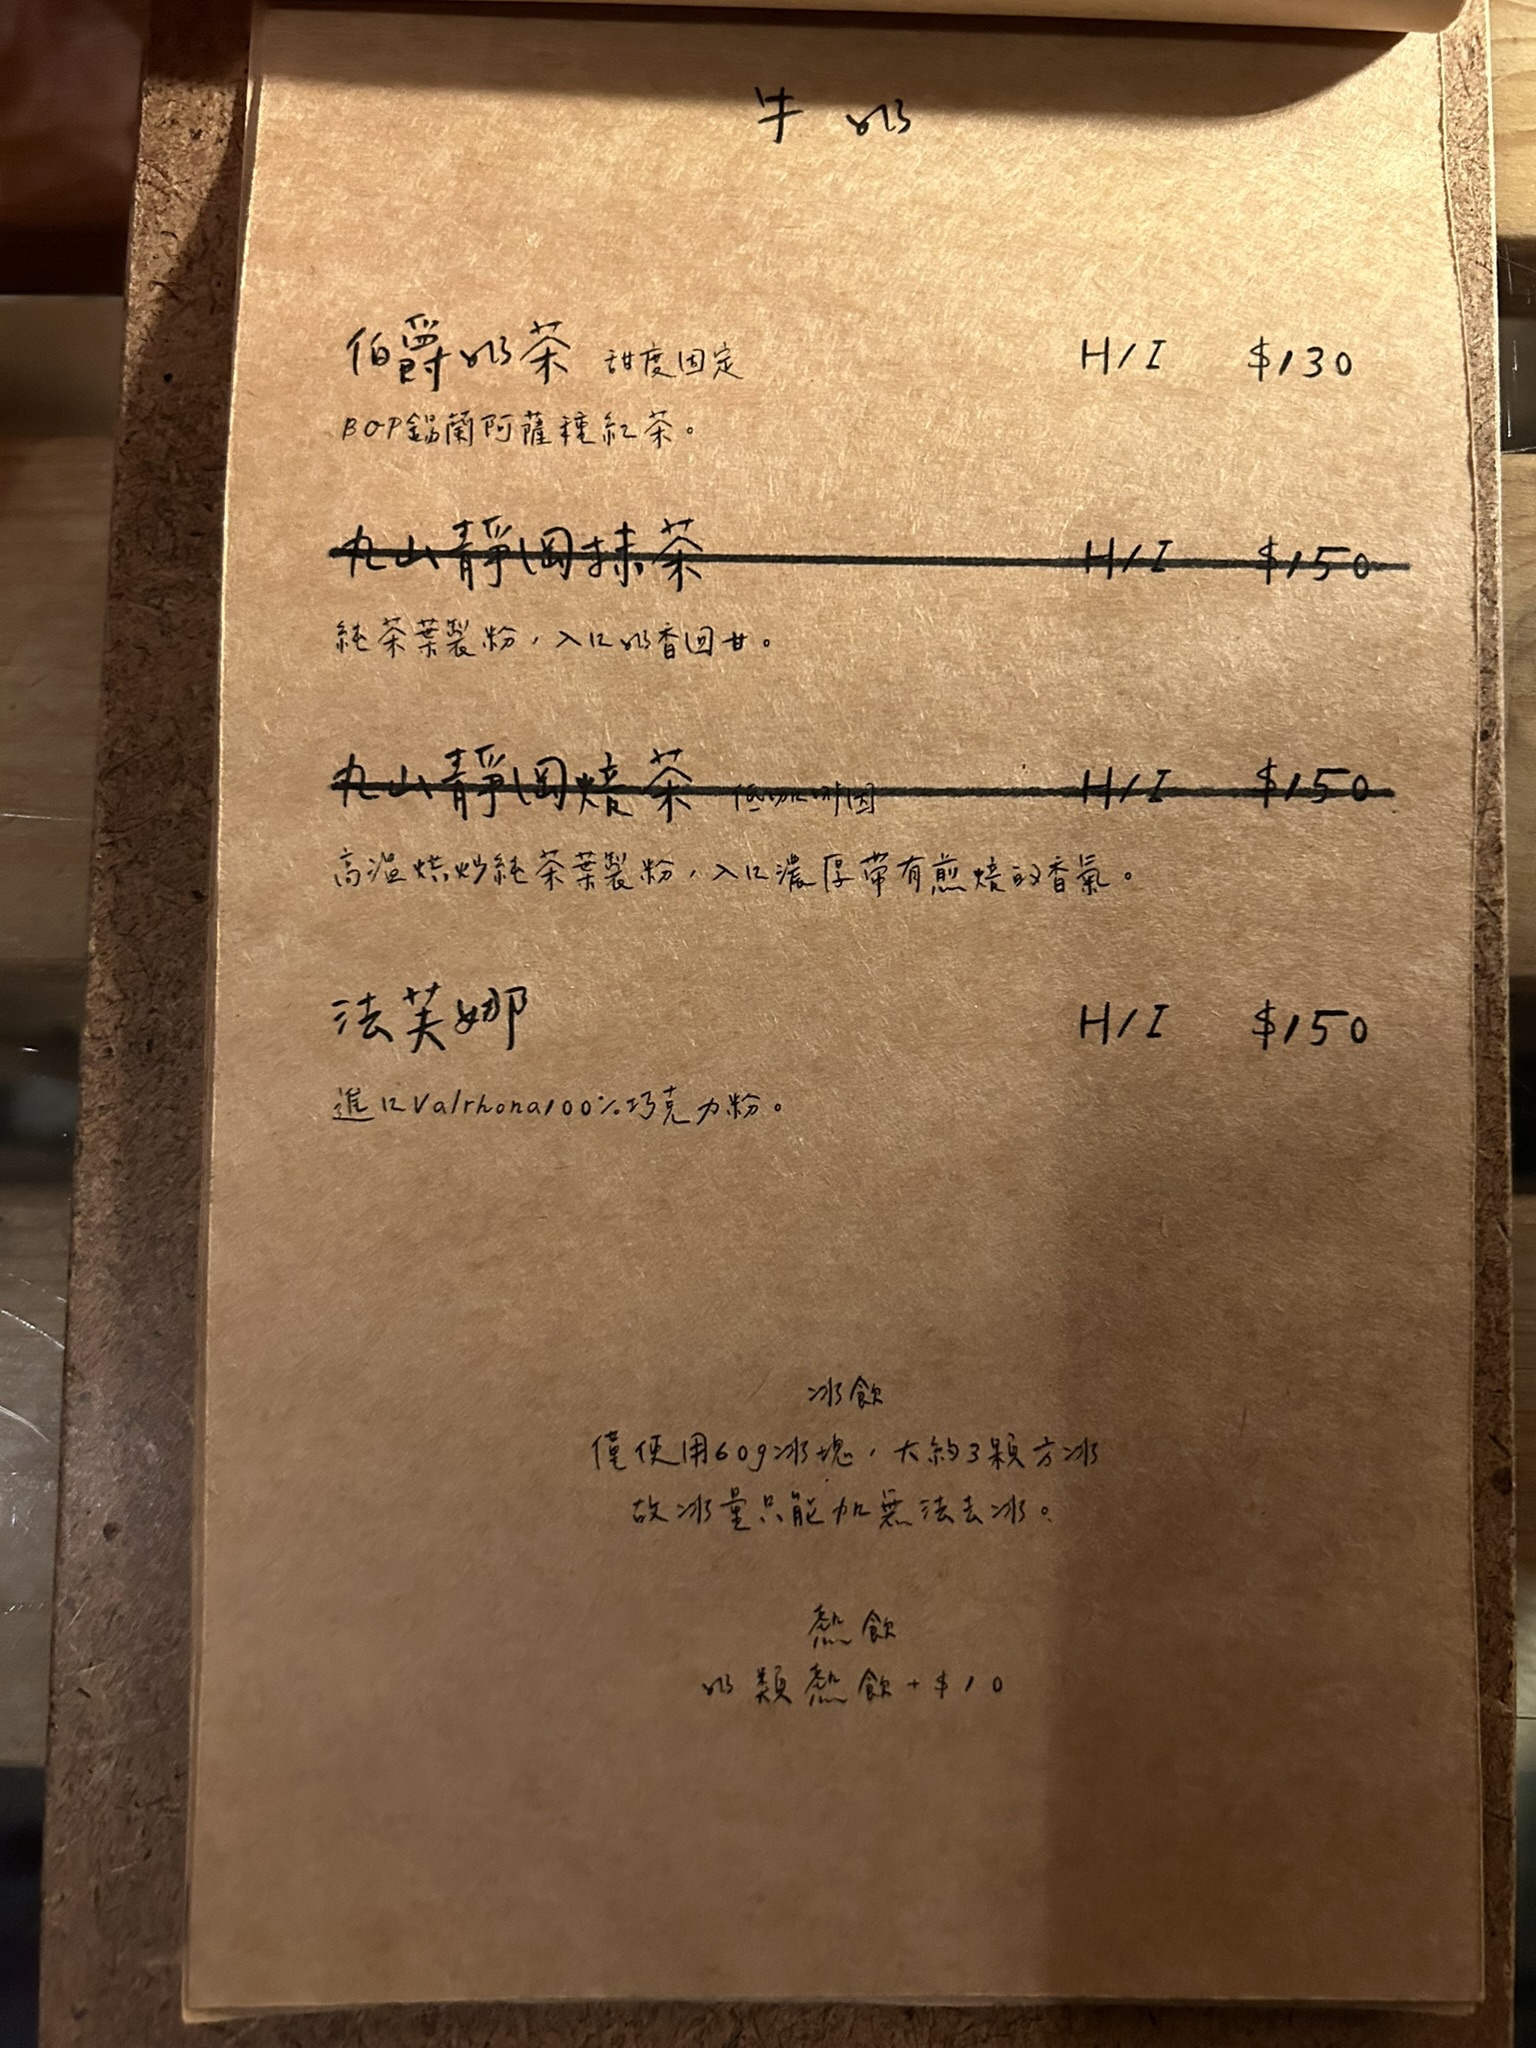 牛奶
伯爵奶茶 甜度固定 H/I $130
BOP錫蘭阿薩種紅茶。
丸山靜岡抹茶 H/I $150
純茶葉製粉，入口奶香回甘。
丸山靜岡焙茶 低咖啡因 H/I $150
高溫烘炒純茶葉製粉，入口濃厚帶有煎焙的香氣。
法芙娜 H/I $150
進口Valrhona100%巧克力粉。
冰飲
僅使用60g冰塊，大約3顆方冰
故冰量只能加無法去冰。
熱飲
奶類熱飲+$10